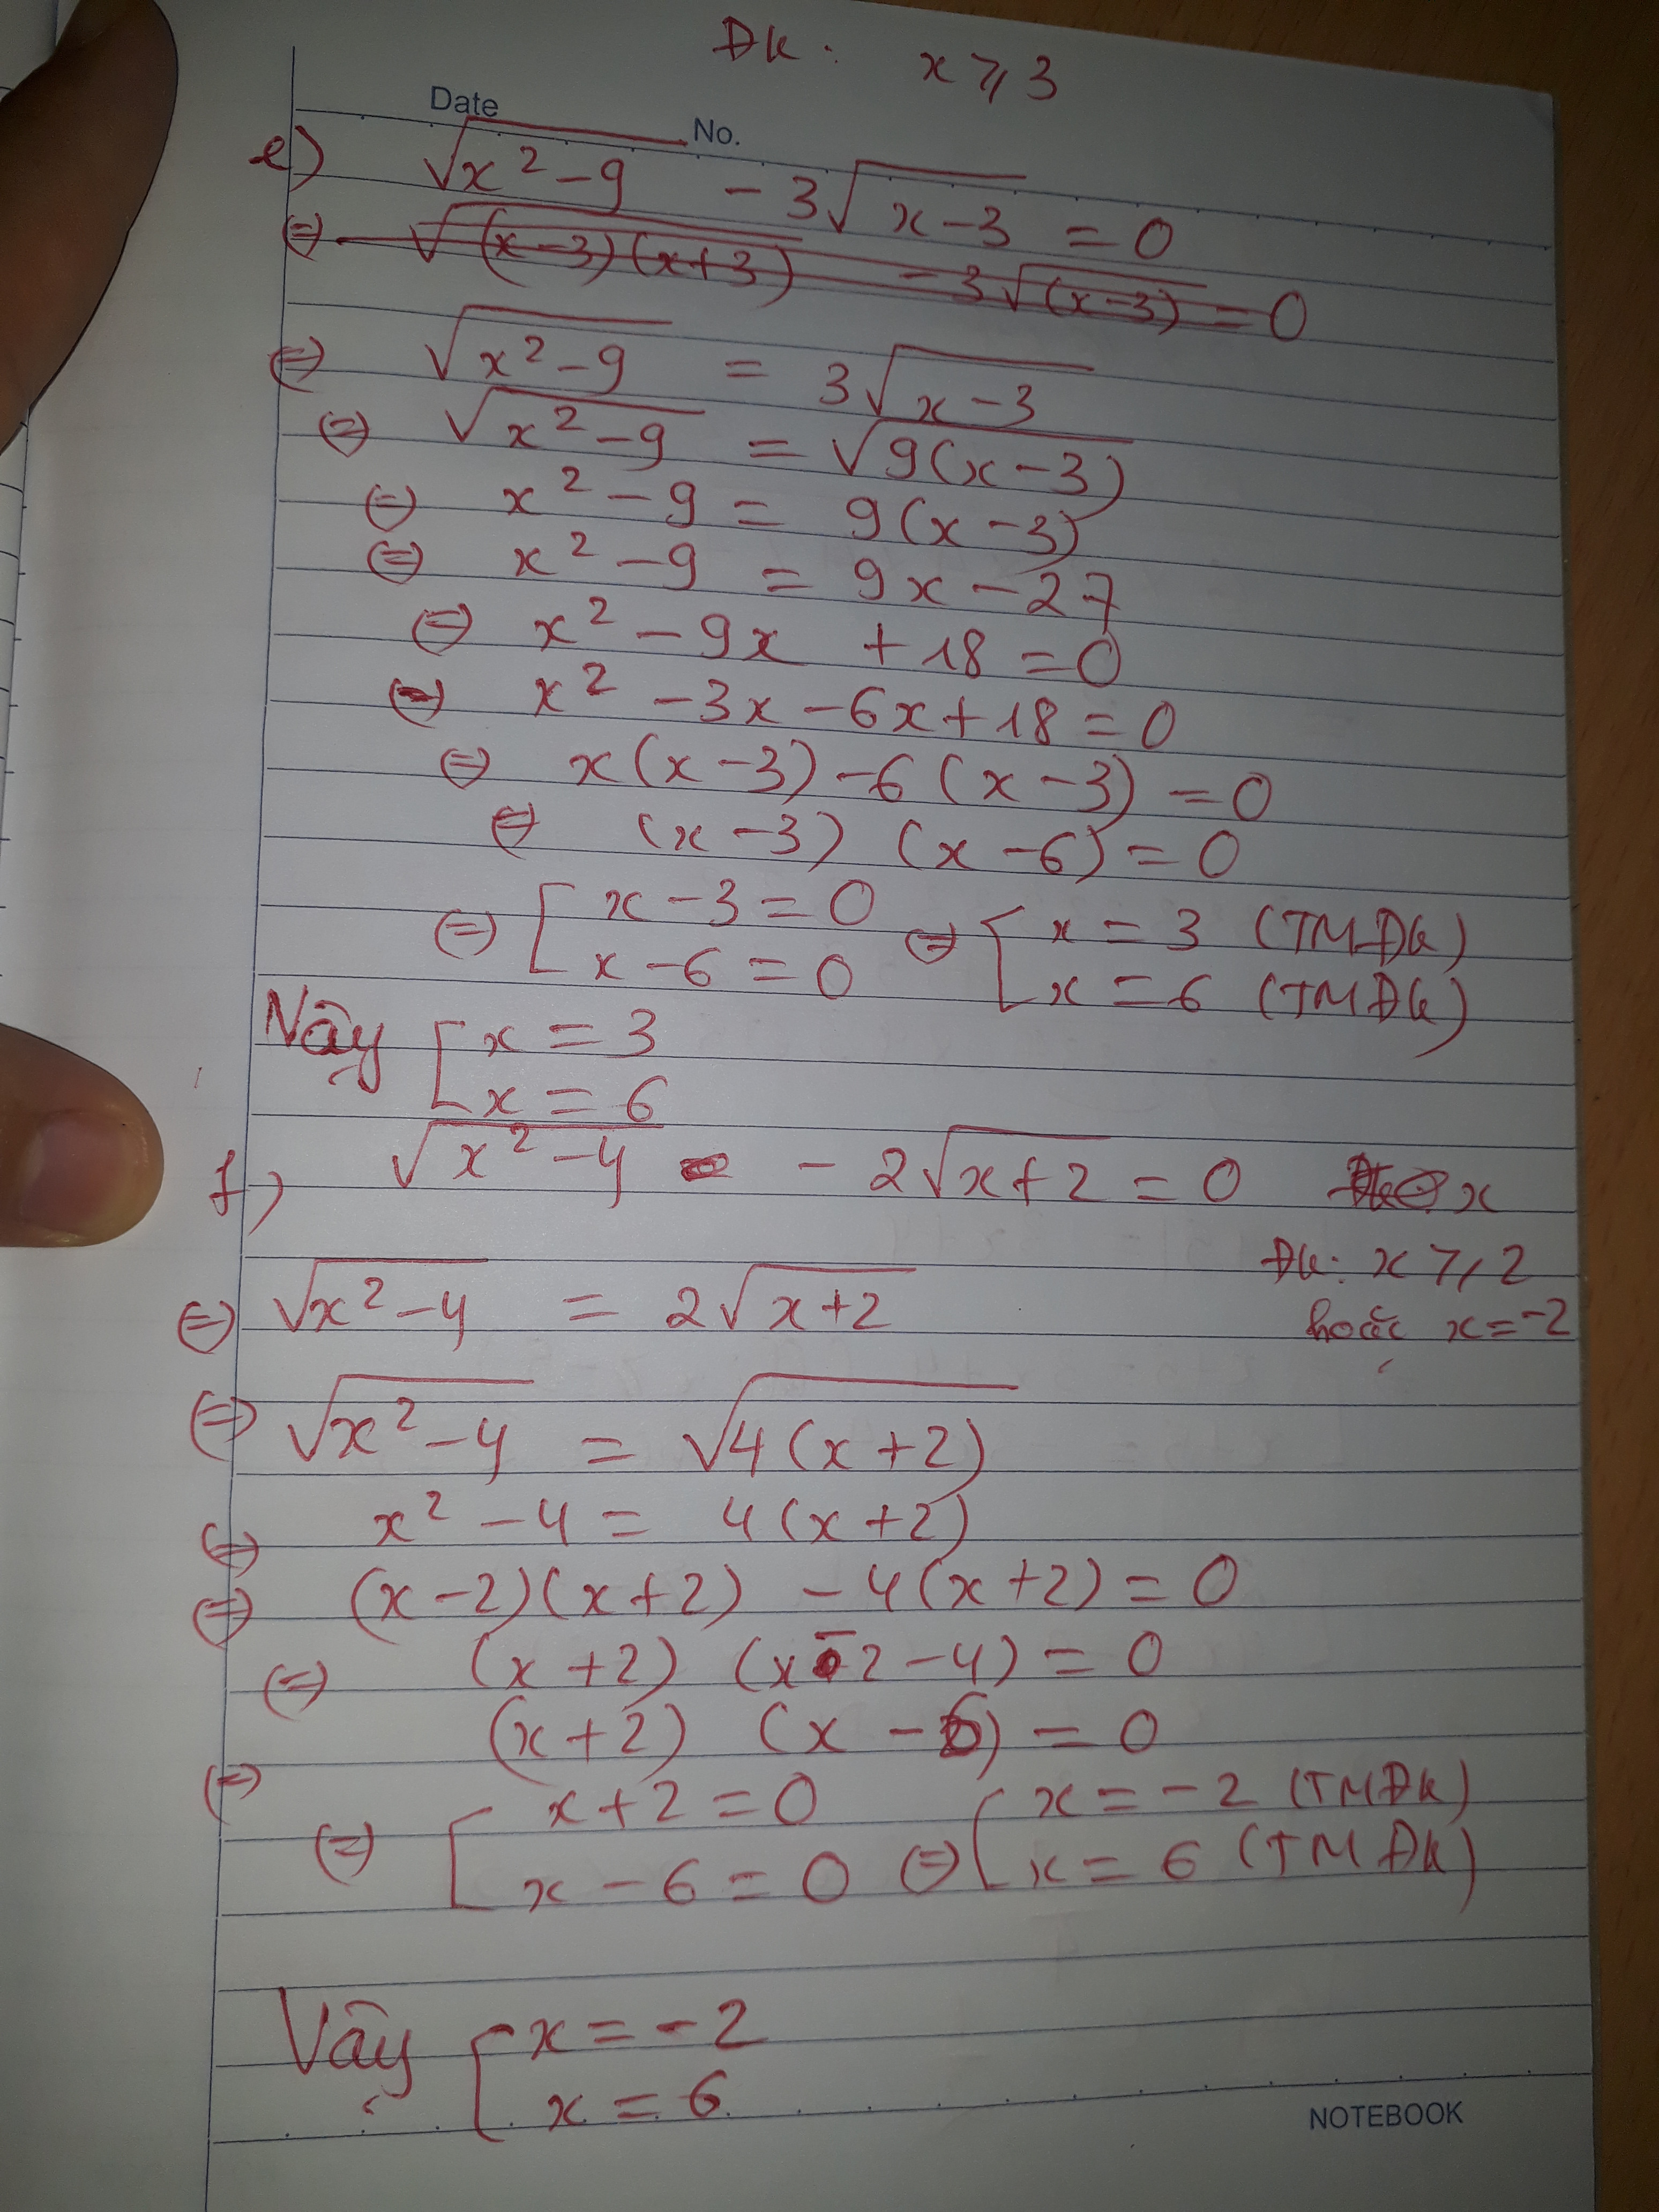 ĐK: x ⩾ 3
Date No.
e) √(x² - 9) - 3√(x - 3) = 0
⇔ √((x-3)(x+3)) - 3√((x-3)) = 0
⇔ √(x² - 9) = 3√(x - 3)
⇔ √(x² - 9) = √(9(x - 3))
⇔ x² - 9 = 9(x - 3)
⇔ x² - 9 = 9x - 27
⇔ x² - 9x + 18 = 0
⇔ x² - 3x - 6x + 18 = 0
⇔ x(x - 3) - 6(x - 3) = 0
⇔ (x - 3) (x - 6) = 0
⇔ [ x - 3 = 0 ⇔ [ x = 3 (TMĐK)
x - 6 = 0 x = 6 (TMĐK)
Vậy [ x = 3
x = 6
f) √(x² - 4) - 2√(x + 2) = 0 x
ĐK: x ⩾ 2
hoặc x = -2
⇔ √(x² - 4) = 2√(x + 2)
⇔ √(x² - 4) = √(4(x + 2))
⇔ x² - 4 = 4(x + 2)
⇔ (x - 2)(x + 2) - 4(x + 2) = 0
⇔ (x + 2) (x - 2 - 4) = 0
⇔ (x + 2) (x - 6) = 0
⇔ [ x + 2 = 0 ⇔ [ x = -2 (TMĐK)
x - 6 = 0 x = 6 (TMĐK)
Vậy [ x = -2
x = 6
NOTEBOOK